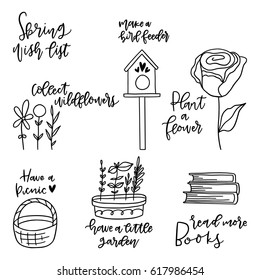 Spring
wish list
make a
bird feeder
collect
wildflowers
Plant
a
flower
Have a
Picnic
have a little
garden
read more
Books
617986454